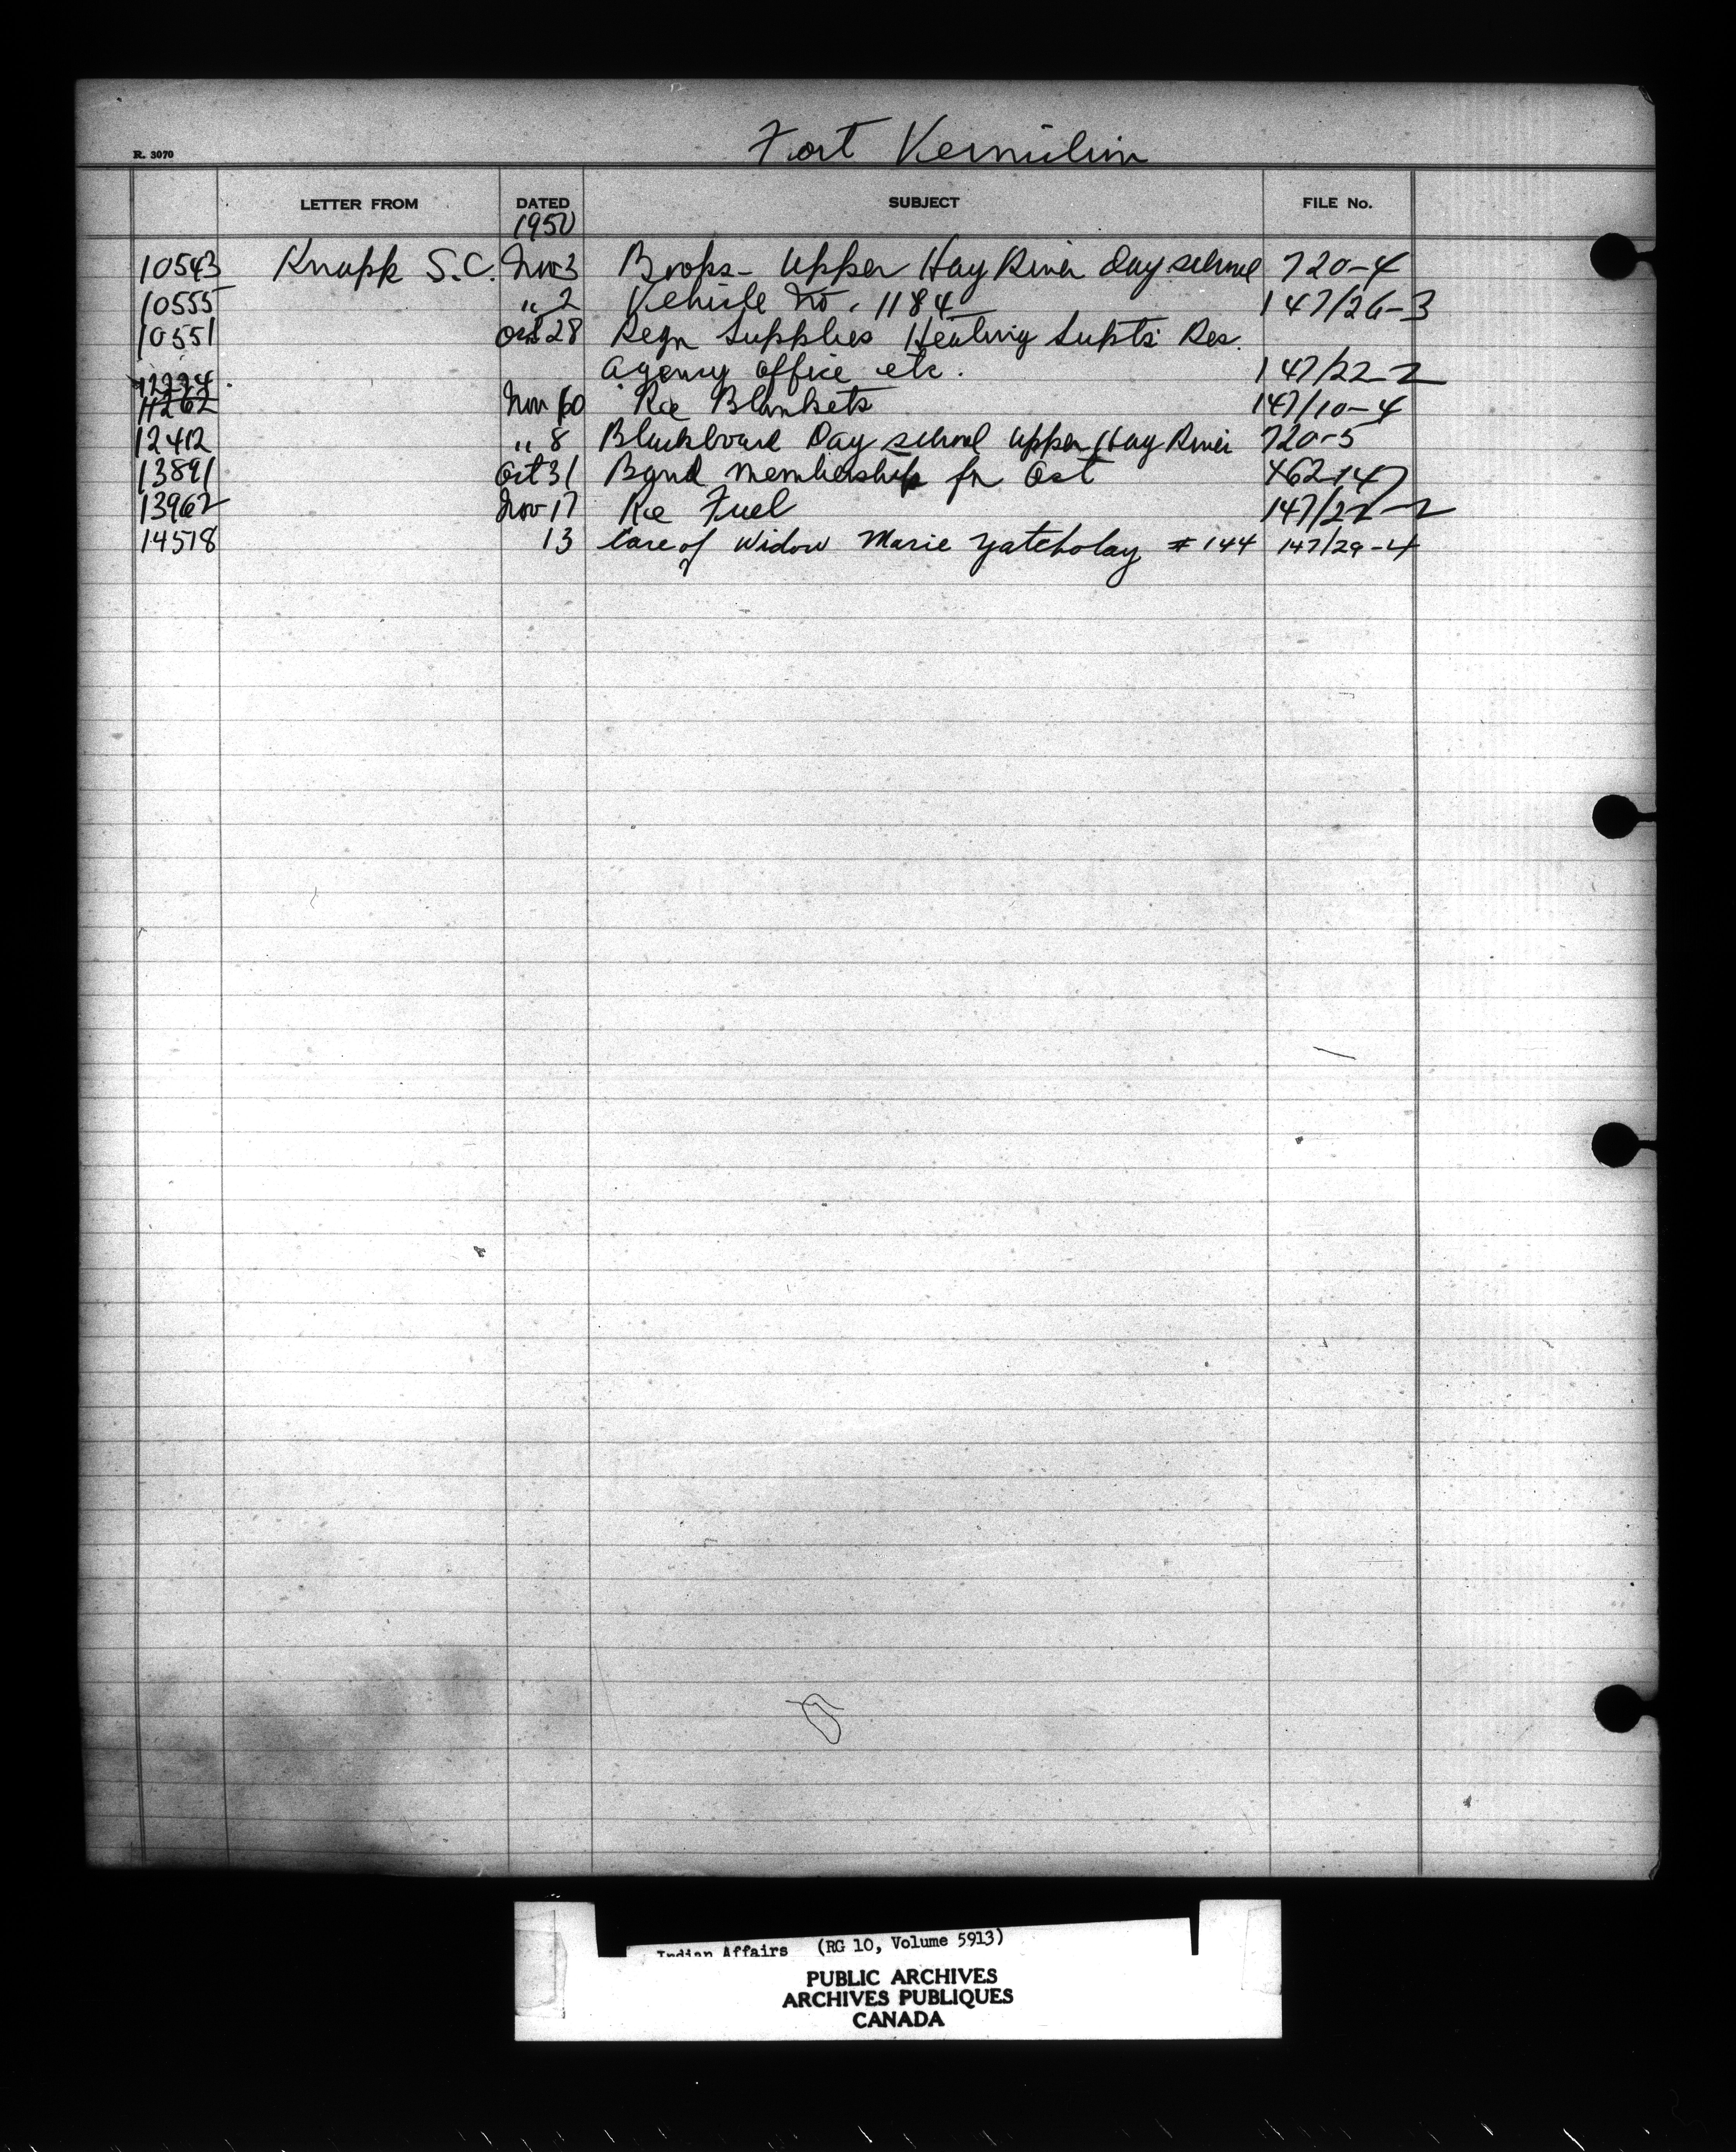 Fort Vermilion
R. 3070
LETTER FROM DATED SUBJECT FILE No.
1950
10543 Knapp S.C. Nov 3 Books - Upper Hay River Day school 720-4
10555 " 2 Vehicle No. 1184 147/26-3
10551 Oct 28 Reqn Supplies Heating Supts Res.
Agency office etc. 147/22-2
12224
11262 Nov 10 Re Blankets 147/10-4
12412 " 8 Blackboard Day school Upper Hay River 720-5
13891 Oct 31 Band Membership for Oct 462-147
13962 Nov 17 Re Fuel 147/22-2
14518 13 Care of Widow Marie Yatcholay # 144 147/29-4
Indian Affairs (RG 10, Volume 5913)
PUBLIC ARCHIVES
ARCHIVES PUBLIQUES
CANADA